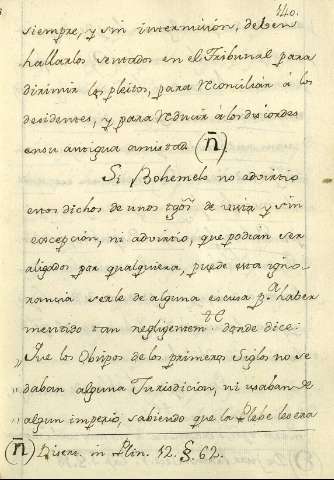 140.
siempre, y sin intermision, deben
hallarlos sentados en el Tribunal para
dirimir los pleitos, para reconciliar à los
desidentes, y para reducir à los discordes
en su antigua amistad (n̄).
Si Bohemelo no advirtio
estos dichos de unos tgos̃ de vista y sin
excepción, ni advirtio, que podian ser
alegados por qualquiera, puede esta igno-
rancia serle de alguna escusa p.ª haber
mentido tan negligentem.te donde dice:
„Que los Obispos de los primeros Siglos no se
„daban alguna Jurisdicion, ni usaban de
„algun imperio, sabiendo que la Plebe les era
(n̄) Disere. in Plin. 12. §. 62.